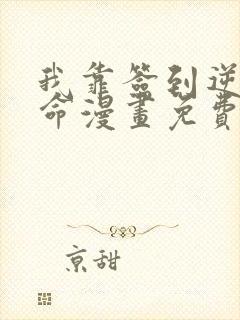 我靠签到逆
命漫畫免費
京甜